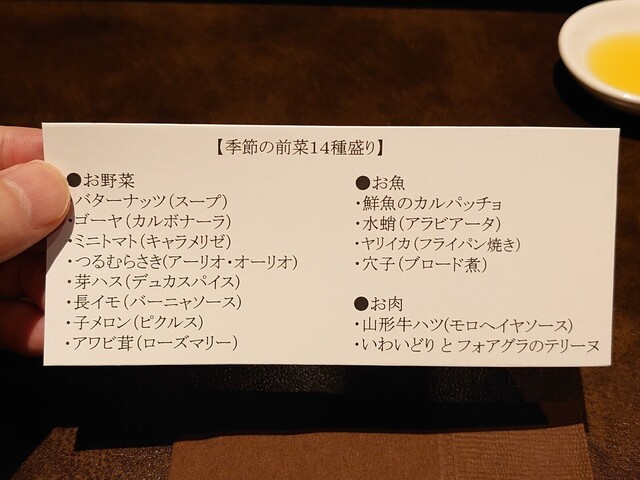 【季節の前菜14種盛り】
●お野菜
・バターナッツ(スープ)
・ゴーヤ(カルボナーラ)
・ミニトマト(キャラメリゼ)
・つるむらさき(アーリオ・オーリオ)
・芽ハス(デュカスパイス)
・長イモ(バーニャソース)
・子メロン(ピクルス)
・アワビ茸(ローズマリー)
●お魚
・鮮魚のカルパッチョ
・水蛸(アラビアータ)
・ヤリイカ(フライパン焼き)
・穴子(ブロード煮)
●お肉
・山形牛ハツ(モロヘイヤソース)
・いわいどりとフォアグラのテリーヌ